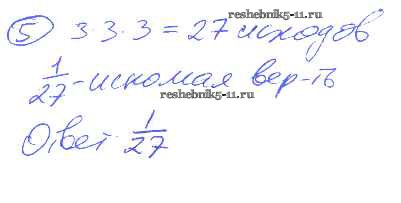 reshebnik5-11.ru
5 3 3 · 3 = 27 исходов
1/27 - искомая вер-ть
reshebnik5-11.ru
Ответ: 1/27